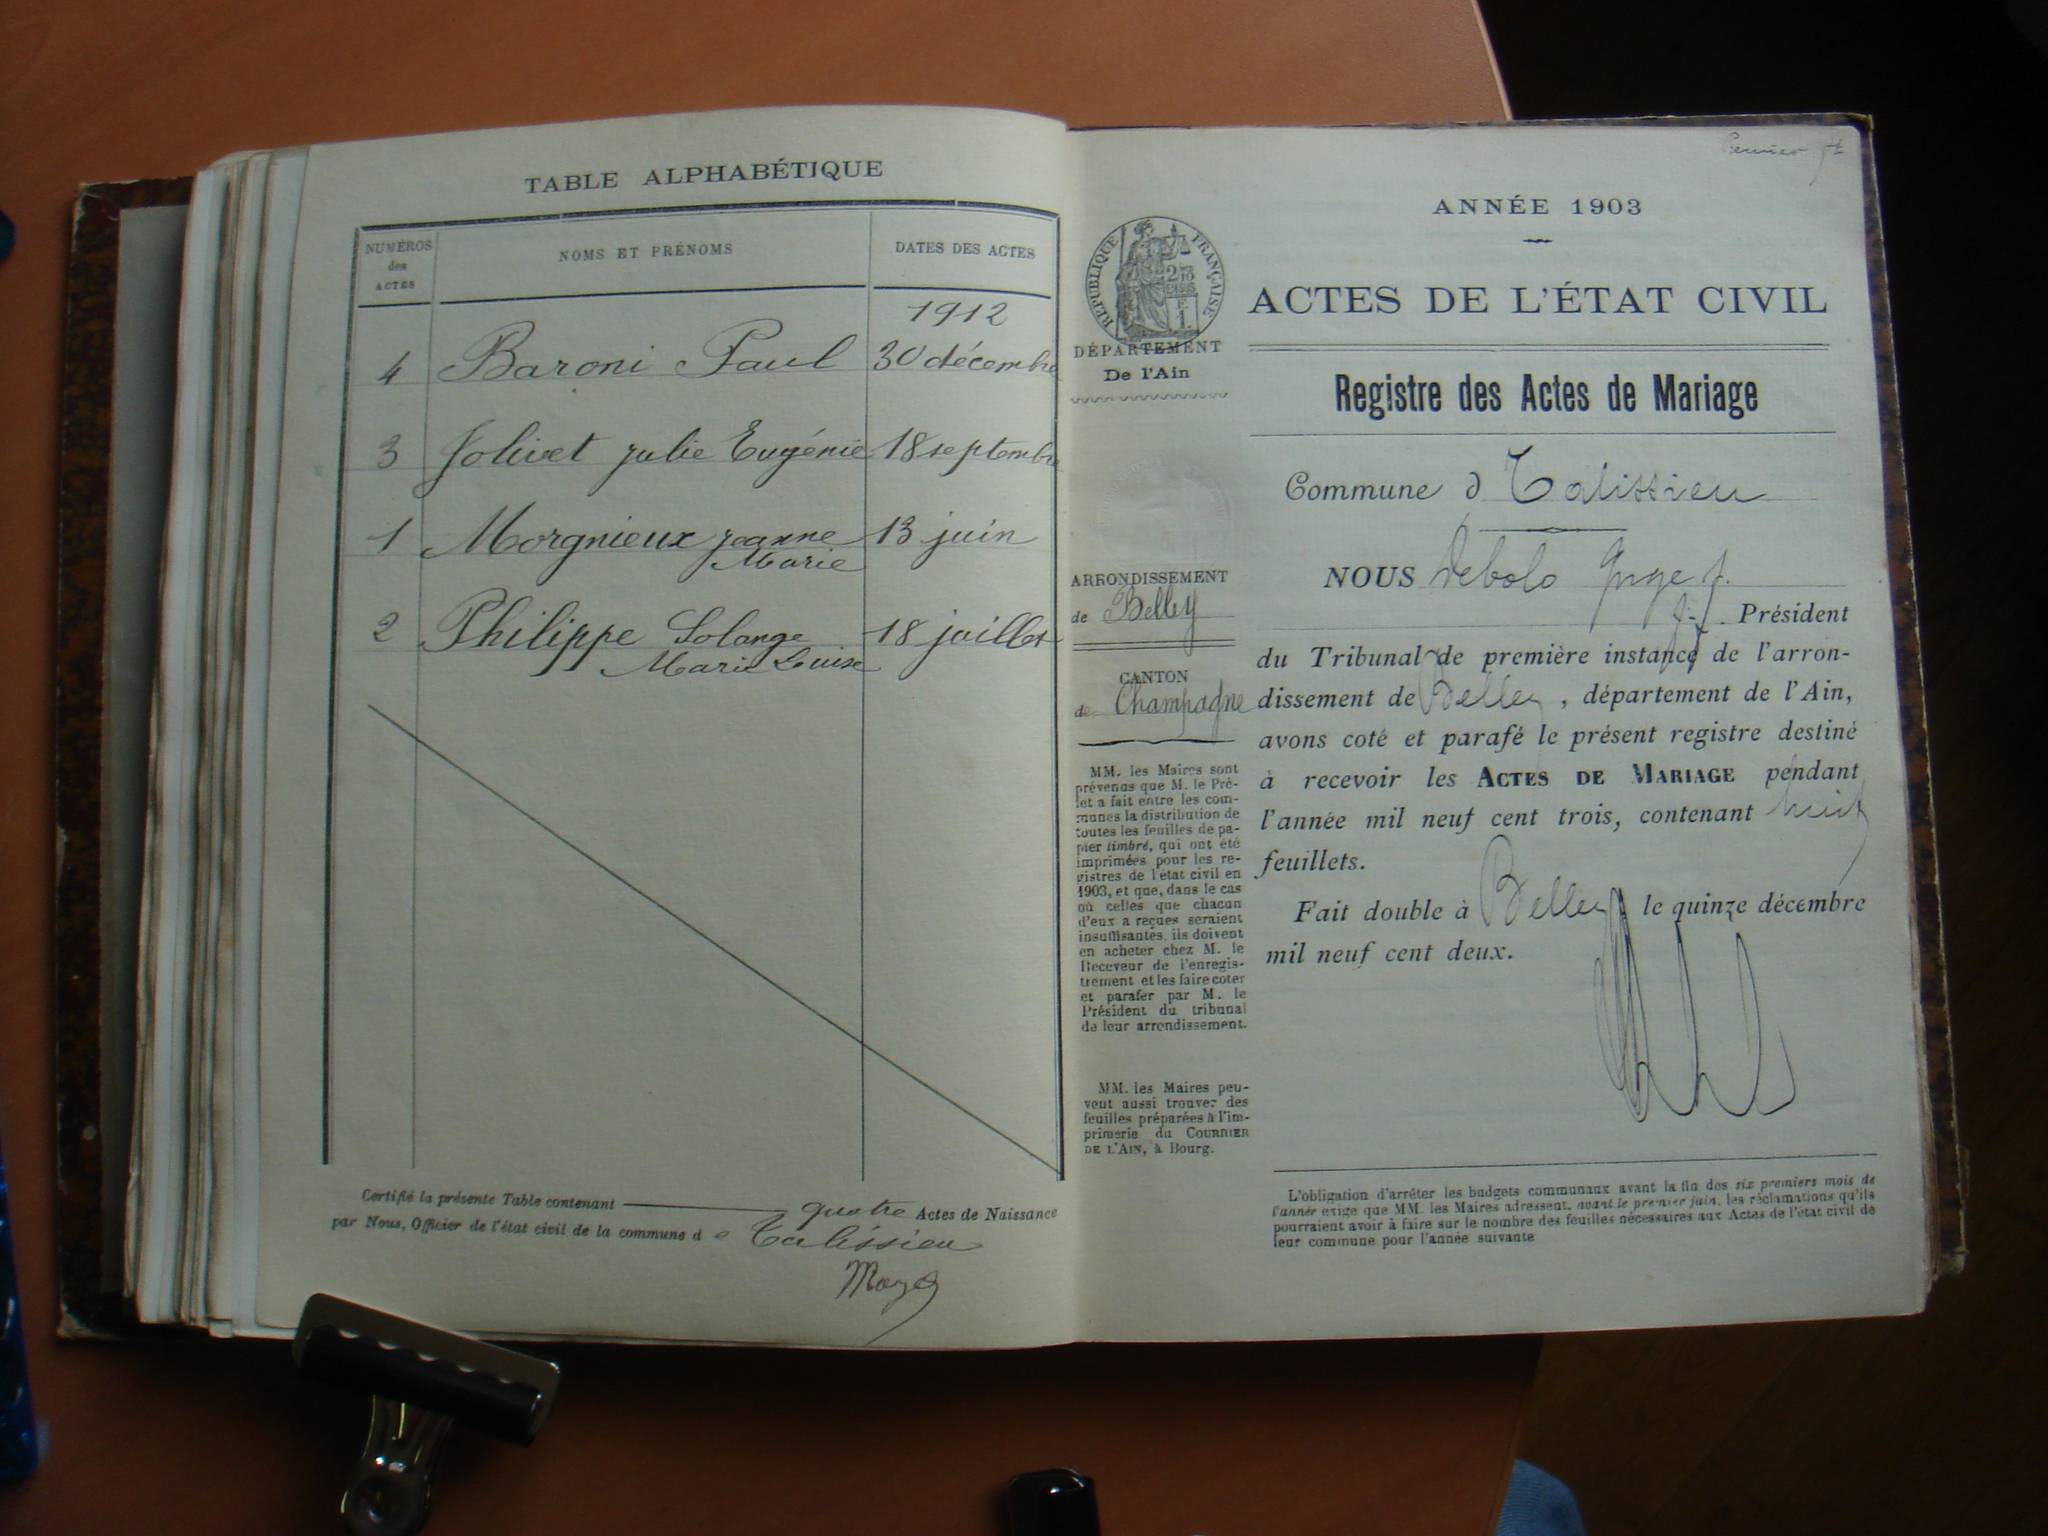 TABLE ALPHABÉTIQUE
NUMÉROS des ACTES
NOMS ET PRÉNOMS
DATES DES ACTES
1912
4 Baroni Paul 30 décembre
3 Jolivet Julie Eugénie 18 septembre
1 Morgnieux Jeanne 13 juin
Marie
2 Philippe Solange 18 juillet
Marie Louise
Certifié la présente Table contenant quatre Actes de Naissance
par Nous, Officier de l'état civil de la commune d e Talissieu
Premier ft
ANNÉE 1903
RÉPUBLIQUE FRANÇAISE
ACTES DE L'ÉTAT CIVIL
DÉPARTEMENT
De l'Ain
Registre des Actes de Mariage
Commune d Talissieu
ARRONDISSEMENT
de Belley
CANTON
de Champagne
MM. les Maires sont
prévenus que M. le Pré-
fet a fait entre les com-
munes la distribution de
toutes les feuilles de pa-
pier timbré, qui ont été
imprimées pour les re-
gistres de l'état civil en
1903, et que, dans le cas
où celles que chacun
d'eux a reçues seraient
insuffisantes, ils doivent
en acheter chez M. le
Receveur de l'enregis-
trement et les faire coter
et parafer par M. le
Président du tribunal
de leur arrondissement.
MM. les Maires peu-
vent aussi trouver des
feuilles préparées à l'im-
primerie du COURRIER
DE L'AIN, à Bourg.
NOUS
Président
du Tribunal de première instance de l'arron-
dissement de Belley, département de l'Ain,
avons coté et parafé le présent registre destiné
à recevoir les ACTES DE MARIAGE pendant
l'année mil neuf cent trois, contenant huit
feuillets.
Fait double à Belley le quinze décembre
mil neuf cent deux.
L'obligation d'arrêter les budgets communaux avant la fin des six premiers mois de
l'année exige que MM. les Maires adressent, avant le premier juin, les réclamations qu'ils
pourraient avoir à faire sur le nombre des feuilles nécessaires aux Actes de l'état civil de
leur commune pour l'année suivante